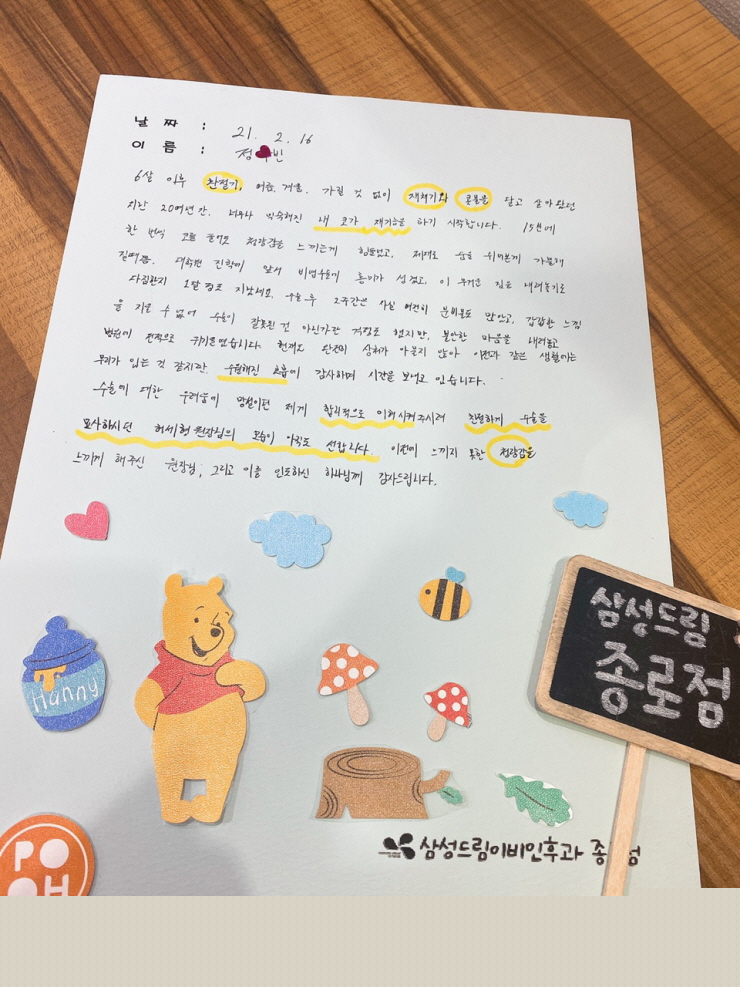 날 짜 : 21. 2. 16
이 름 : 정 빈
6살 이후 환절기, 여름, 겨울, 가릴 것 없이 재채기와 콧물을 달고 살아왔던
지난 20여년간, 너무나 익숙해진 내 코가 제기능을 하기 시작합니다. 15분에
한 번씩 코를 풀어도 청량감을 느끼는게 힘들었고, 제대로 숨을 쉬어본게 가물가물
길 때쯤, 대학병 진학에 앞서 비염수술에 흥미가 생겼고, 이 무거운 짐을 내려놓기로
다짐한지 1달 정도 지났네요. 수술 후 2주간은 사실 여전히 분비물도 많았고, 갑갑한 느낌
을 지울 수 없어 수술이 잘못된 건 아닌가란 걱정도 했지만, 불안한 마음을 내려놓고
병원에 전적으로 맡겼습니다. 현재도 완전히 상처가 아물지 않아 이전과 같은 생활에는
무리가 있는 것 같지만, 수월해진 호흡에 감사하며 시간을 보내고 있습니다.
수술에 대한 두려움이 망설이던 제게 합리적으로 이해시켜주시려 친절하게 수술을
묘사하시던 허세형 원장님의 모습이 아직도 선합니다. 이전에 느끼지 못한 청량감을
느끼게 해주신 원장님, 그리고 이를 인도하신 하나님께 감사드립니다.
Hunny
삼성드림
종로점
PO
OH
삼성드림이비인후과 종 점